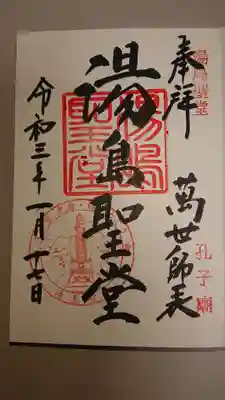 湯島聖堂
奉拝
萬世師表
孔子廟
湯島聖堂
湯島聖堂
令和三年一月十七日